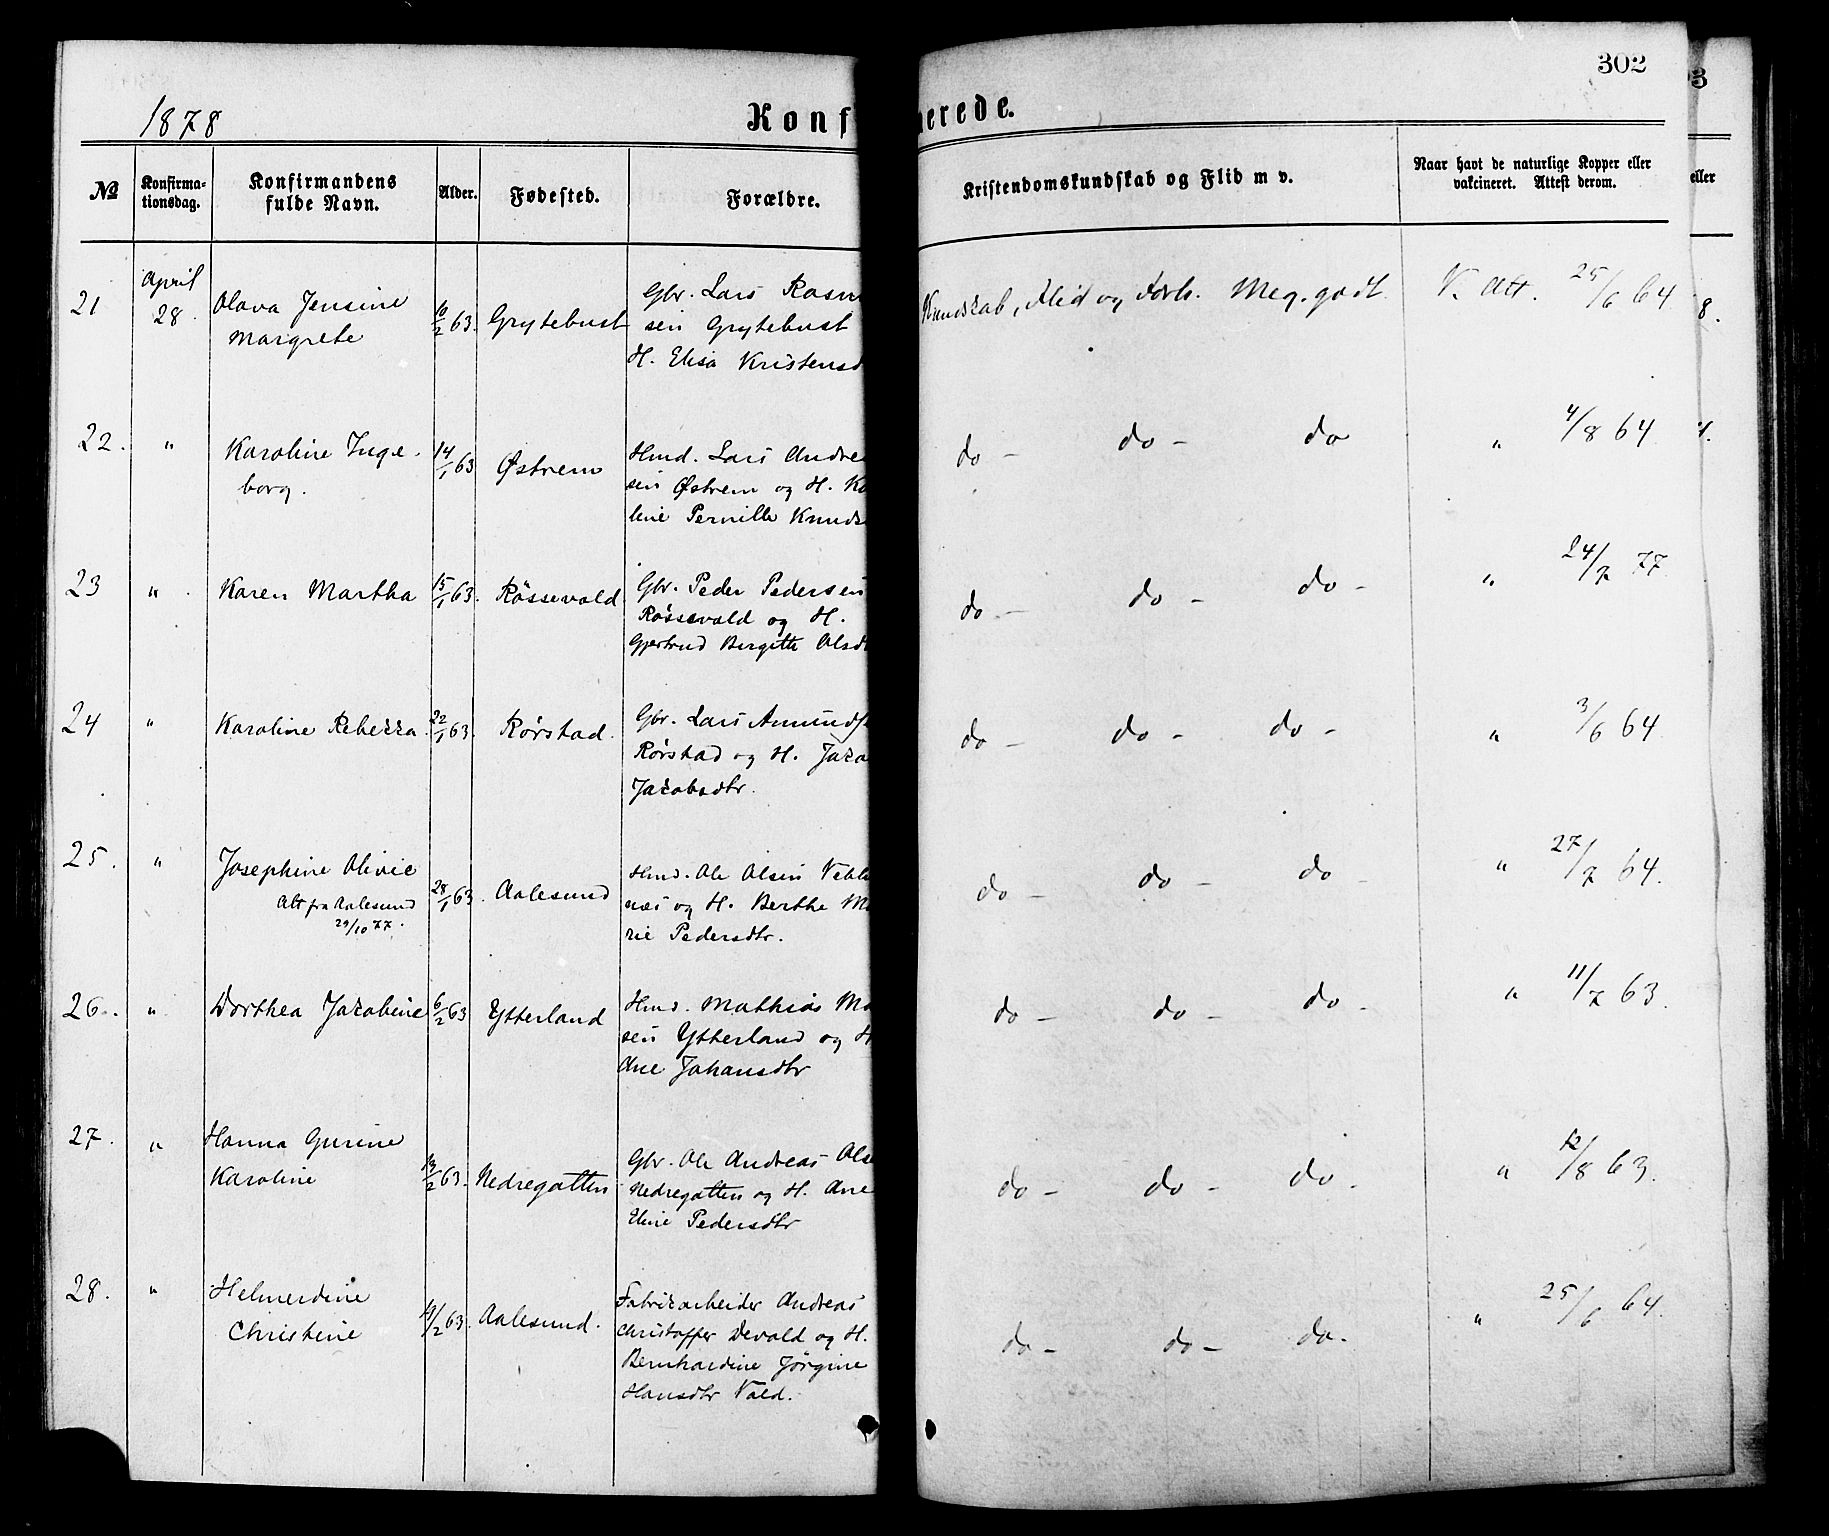 302
1878
Konf
nerede.
№
Konfirma-
tionsdag.
Konfirmandens
fulde Navn.
Alder.
Fødested.
Forældre.
Kristendomskundskab og Flid m v.
Naar havt de naturlige Kopper eller
vakcineret. Attest derom.
eller
21
April
28.
Olava Jensine
Margrete
10/2 63.
Grytebust
Gbr. Lars Rasm
sen Grytebust
H. Elisa Kristensd
Kundskab, Flid og Forh. Meg. godt
V. Att. 25/6 64
8.
22. " Karoline Inge-
borg.
14/1 63
Østrem
Hmd. Lars Andrea
sen Østrem og H. Ka
line Pernille Knuds
do - do - do
" 4/8 64
23 " Karen Martha
15/1 63.
Røssevold
Gbr. Peder Pedersen
Røssevold og H.
Gjertrud Birgitte Olsdt
do - do - do -
" 24/7 77
24 " Karoline Rebekka
22/1 63.
Rørstad.
Gbr. Lars Amunds
Rørstad og H. Jako
Jakobsdtr.
do - do - do -
" 3/6 64
25. " Josephine Olivie
Att fra Aalesund
29/10 77.
28/1 63.
Aalesund
Hmd. Ole Olsen Veble
næs og H. Berthe Ma
rie Pedersdtr.
do - do - do -
" 27/7 64.
26. " Dorthea Jakobine
6/2 63
Ytterland
Hmd. Mathias Ma
sen Ytterland og H
Ane Johansdtr
do - do - do -
" 11/7 63.
27. " Hanna Gurine
Karoline
13/2 63.
Nedregotten
Gbr. Ole Andreas Olse
Nedregotten og H. Ane
Eline Pedersdtr
do - do - do -
" 12/8 63.
28. " Helmerdine
Christine
4/2 63.
Aalesund.
Fabrikarbeider Andreas
Christoffer Devold og H.
Bernhardine Jørgine
Hansdtr Vold.
do - do - do.
" 25/6 64.